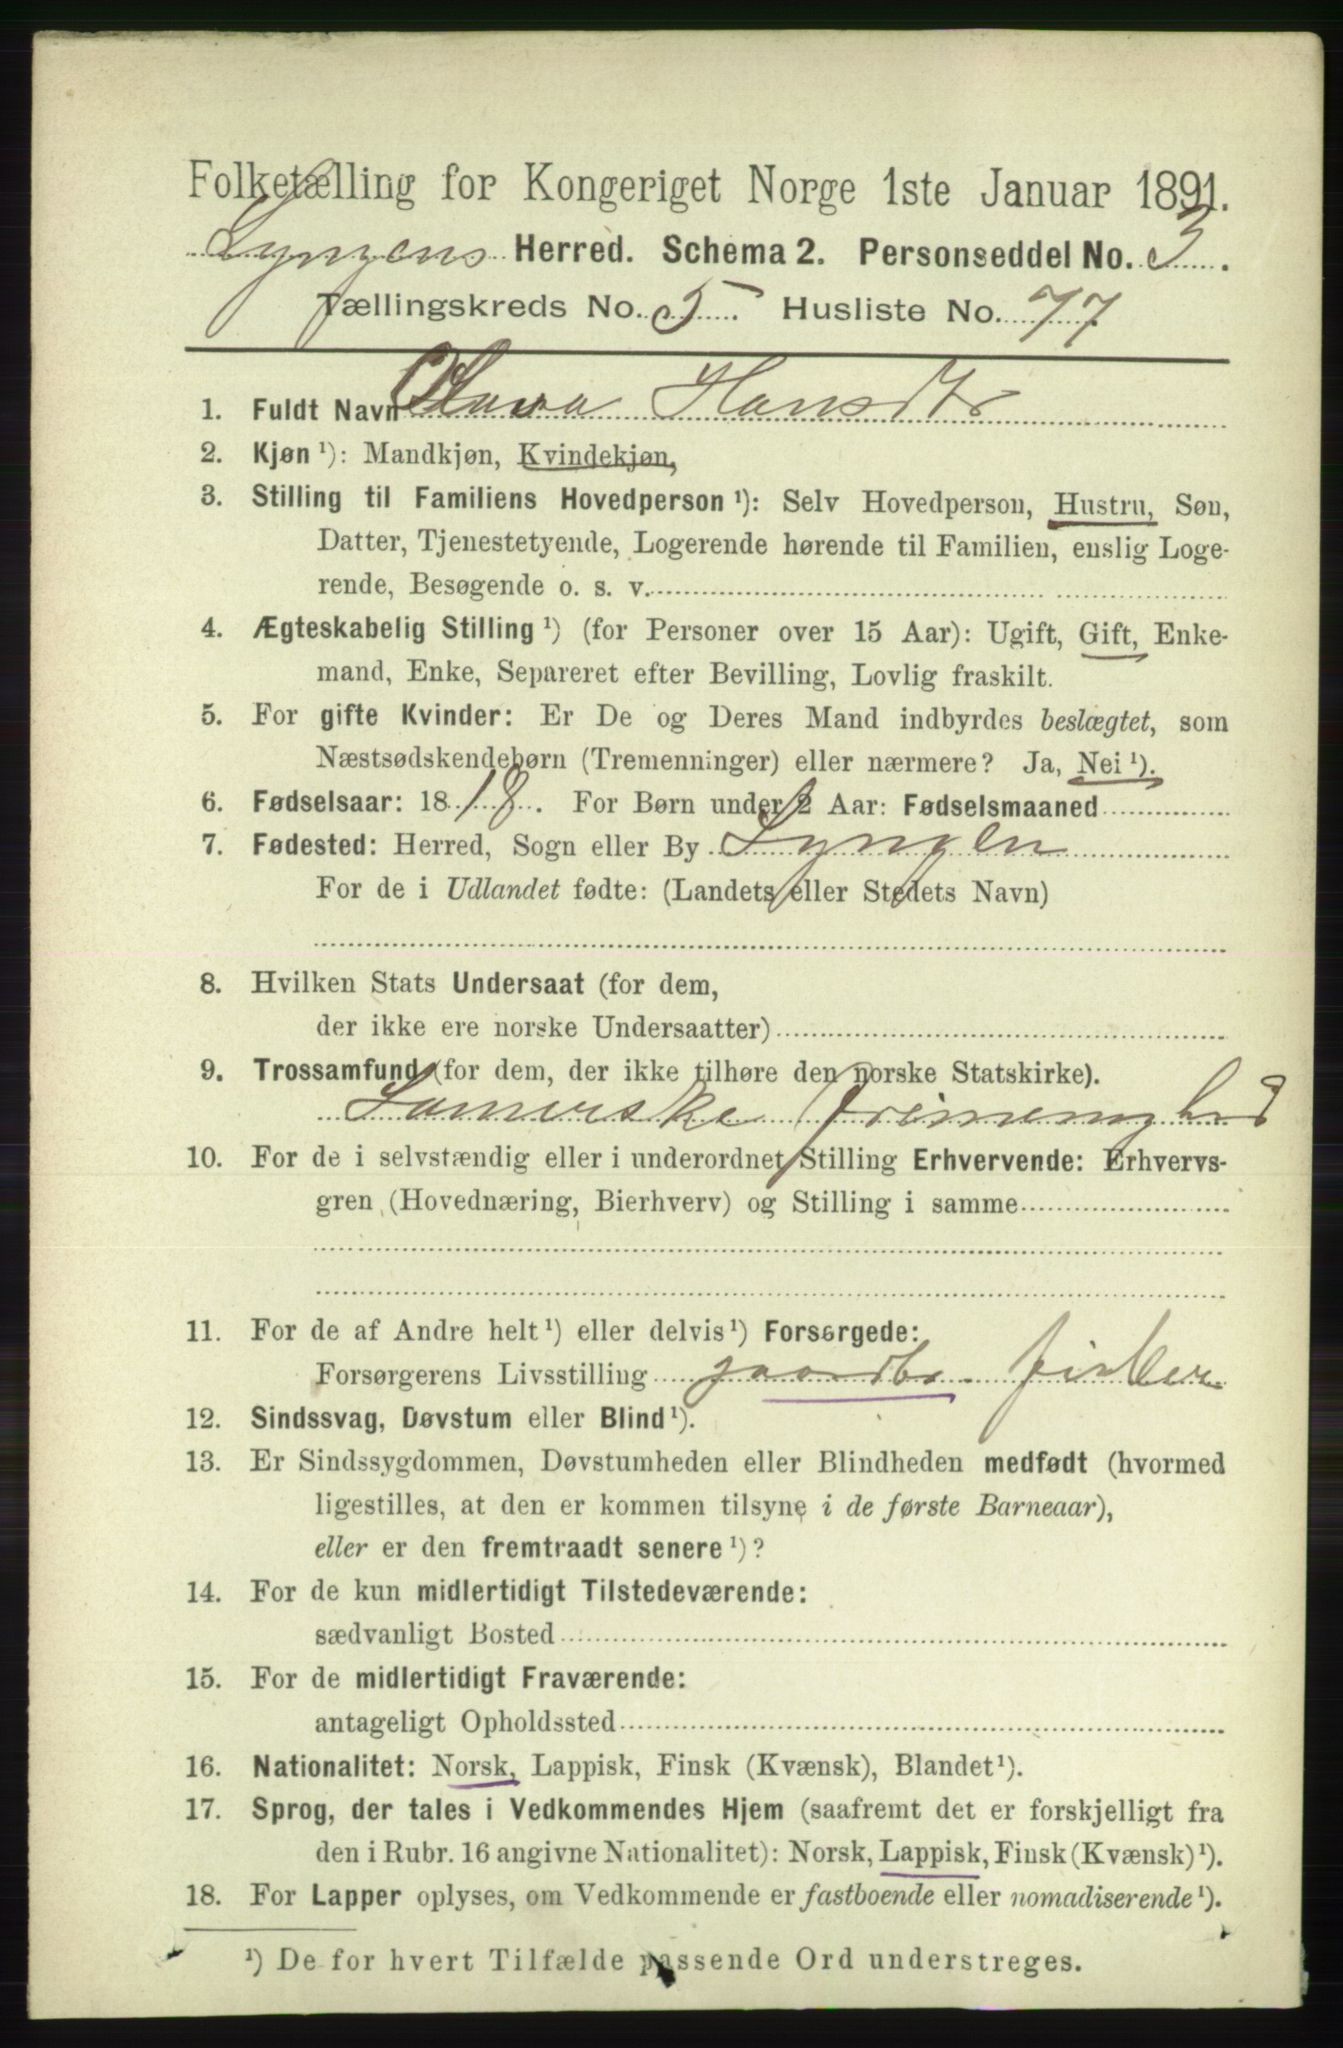 Folketælling for Kongeriget Norge 1ste Januar 1891.
Lyngens Herred. Schema 2. Personseddel No. 3.
Tællingskreds No. 5. Husliste No. 77.
1. Fuldt Navn Hansdtr
2. Kjøn ¹): Mandkjøn, Kvindekjøn,
3. Stilling til Familiens Hovedperson ¹): Selv Hovedperson, Hustru, Søn,
Datter, Tjenestetyende, Logerende hørende til Familien, enslig Loge-
rende, Besøgende o. s. v.
4. Ægteskabelig Stilling ¹) (for Personer over 15 Aar): Ugift, Gift, Enke-
mand, Enke, Separeret efter Bevilling, Lovlig fraskilt.
5. For gifte Kvinder: Er De og Deres Mand indbyrdes beslægtet, som
Næstsødskendebørn (Tremenninger) eller nærmere? Ja, Nei ¹).
6. Fødselsaar: 1818. For Børn under 2 Aar: Fødselsmaaned
7. Fødested: Herred, Sogn eller By Lyngen
For de i Udlandet fødte: (Landets eller Stedets Navn)
8. Hvilken Stats Undersaat (for dem,
der ikke ere norske Undersaatter)
9. Trossamfund (for dem, der ikke tilhøre den norske Statskirke).
10. For de i selvstændig eller i underordnet Stilling Erhvervende: Erhvervs-
gren (Hovednæring, Bierhverv) og Stilling i samme
11. For de af Andre helt ¹) eller delvis ¹) Forsørgede:
Forsørgerens Livsstilling gaardbr. fisker
12. Sindssvag, Døvstum eller Blind ¹).
13. Er Sindssygdommen, Døvstumheden eller Blindheden medfødt (hvormed
ligestilles, at den er kommen tilsyne i de første Barneaar),
eller er den fremtraadt senere ¹)?
14. For de kun midlertidigt Tilstedeværende:
sædvanligt Bosted
15. For de midlertidigt Fraværende:
antageligt Opholdssted
16. Nationalitet: Norsk, Lappisk, Finsk (Kvænsk), Blandet ¹).
17. Sprog, der tales i Vedkommendes Hjem (saafremt det er forskjelligt fra
den i Rubr. 16 angivne Nationalitet): Norsk, Lappisk, Finsk (Kvænsk) ¹).
18. For Lapper oplyses, om Vedkommende er fastboende eller nomadiserende ¹).
¹) De for hvert Tilfælde passende Ord understreges.